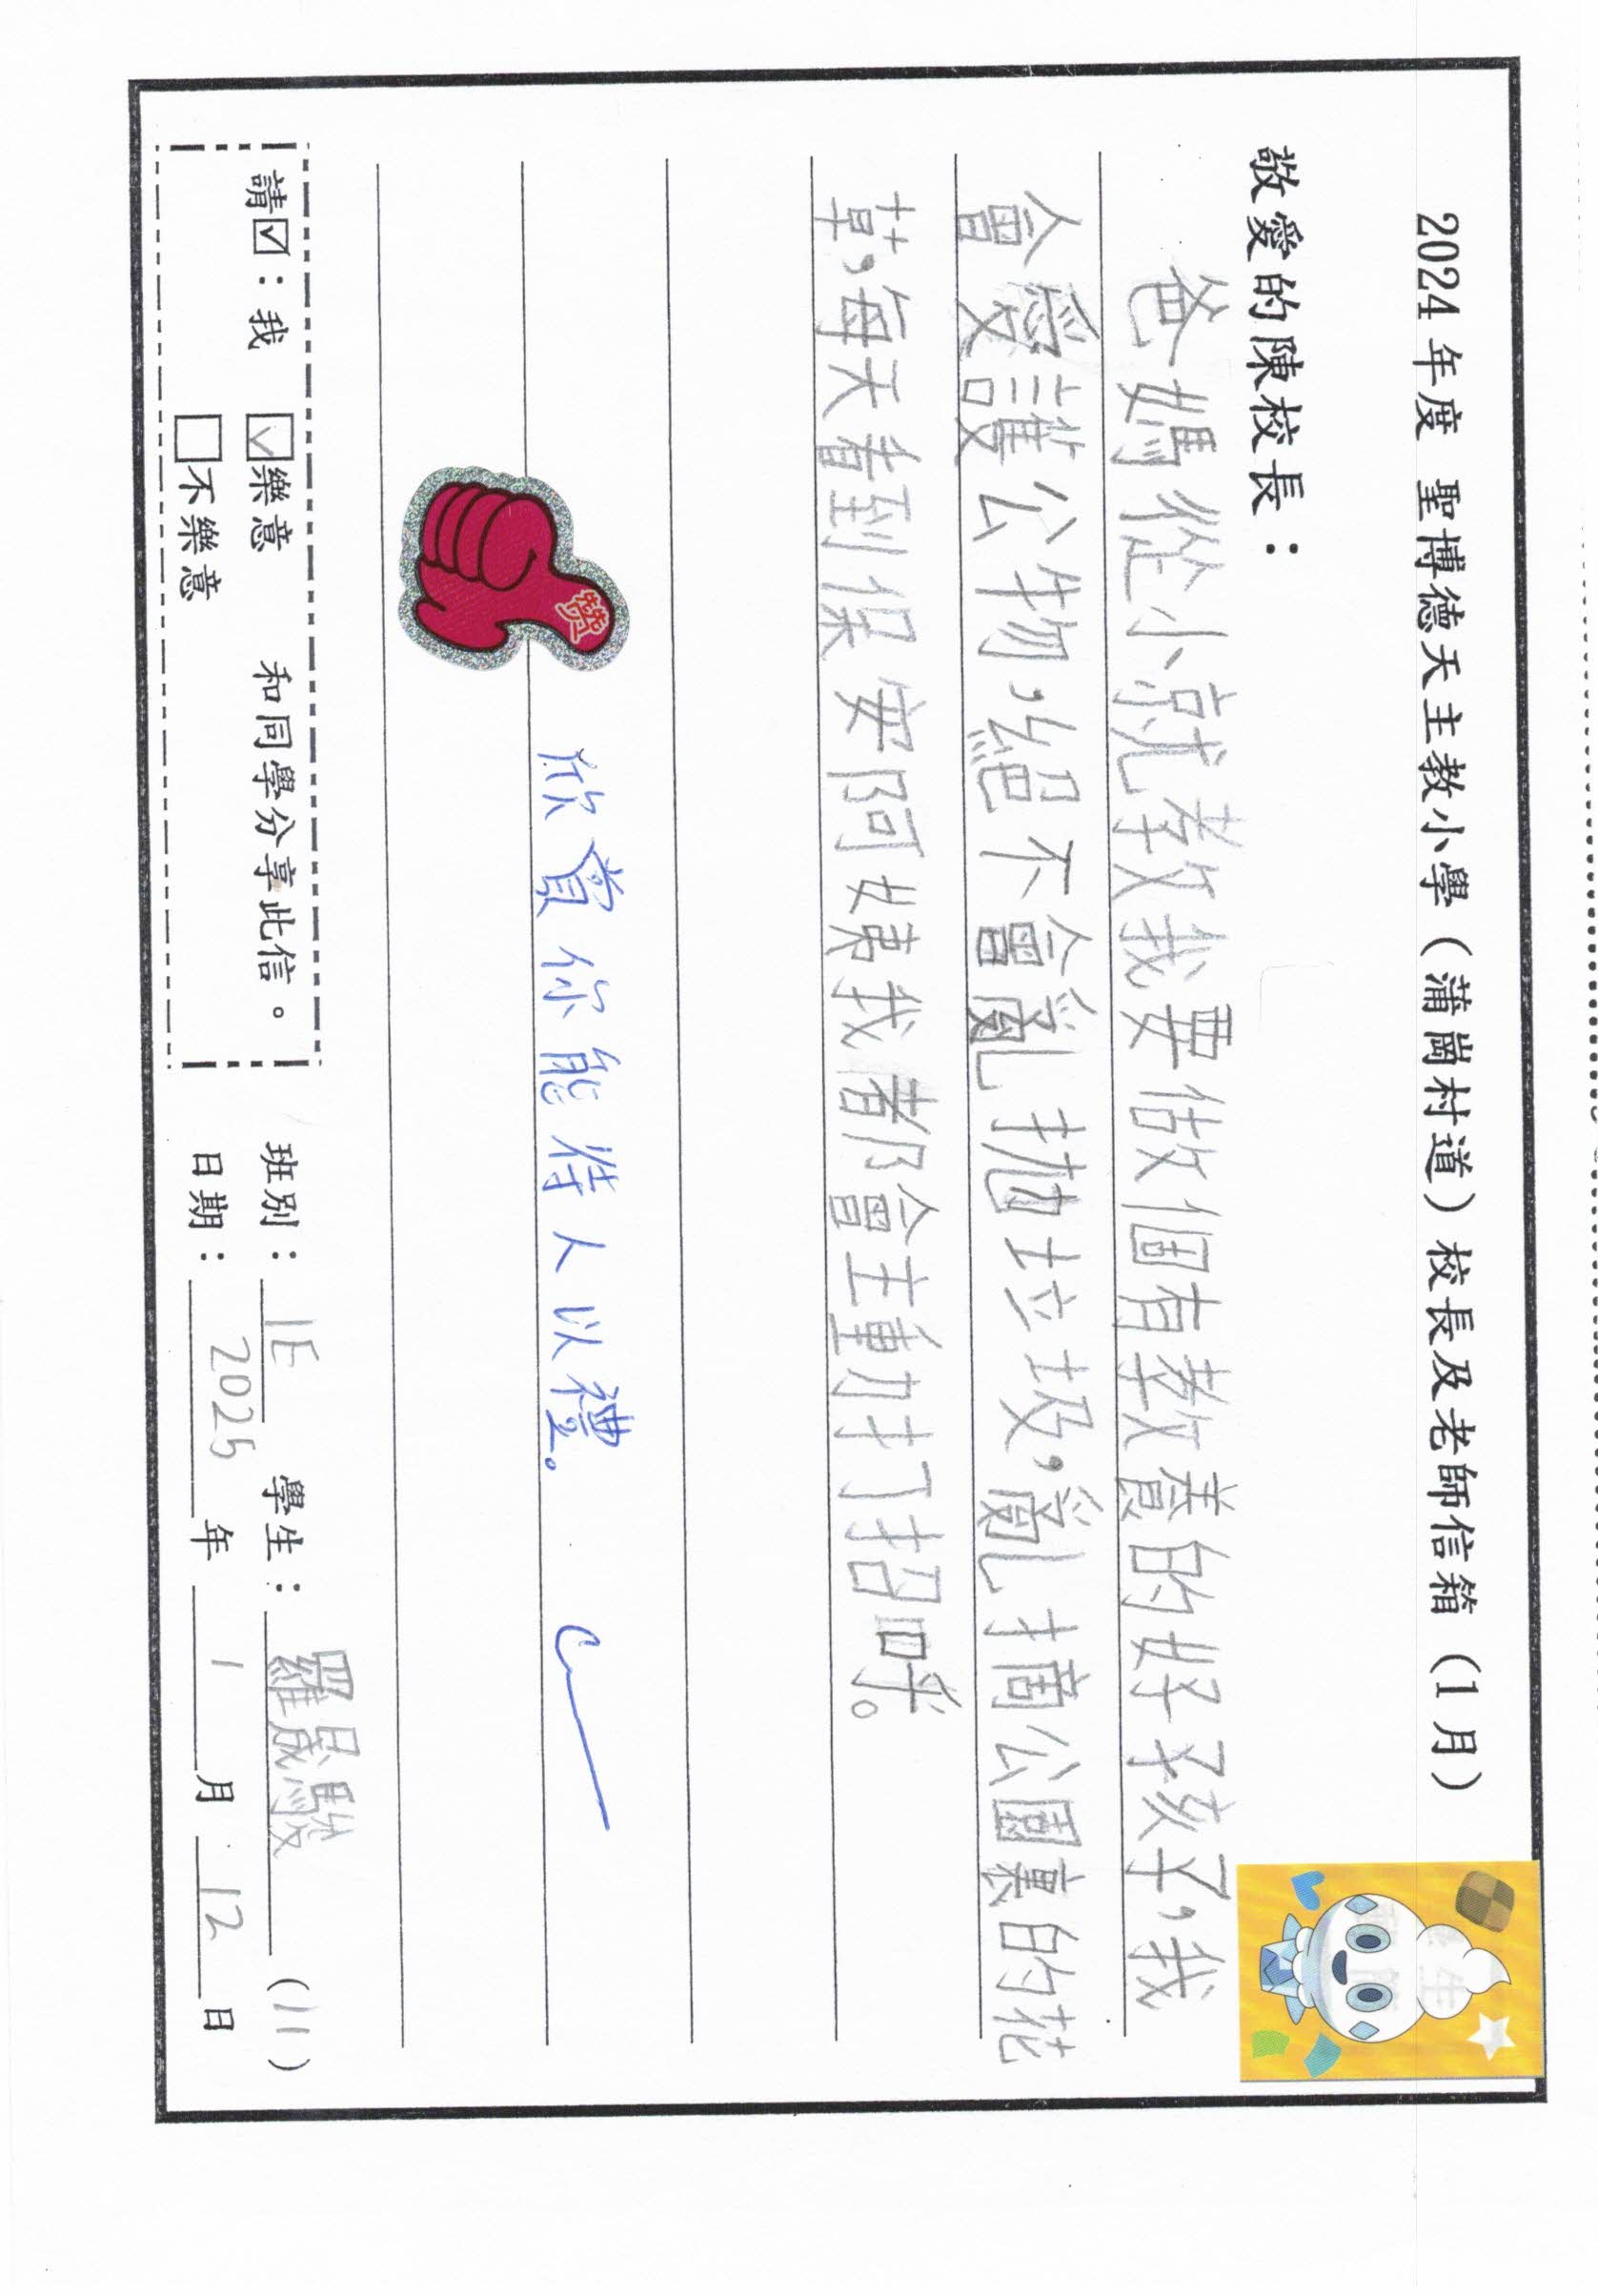 2024 年度 聖博德天主教小學（蒲崗村道）校長及老師信箱（1 月）
敬愛的陳校長：
爸媽從小就教我要做個有教養的好孩子，我
會愛護公物，絕不會亂拋垃圾，亂摘公園裏的花
草，每天看到保安阿姨我都會主動打招呼。
欣賞你能待人以禮。
讚
請☑：我 ☑樂意 和同學分享此信。
□不樂意
班別：1E 學生：羅晟駿 (11)
日期：2025 年 1 月 12 日